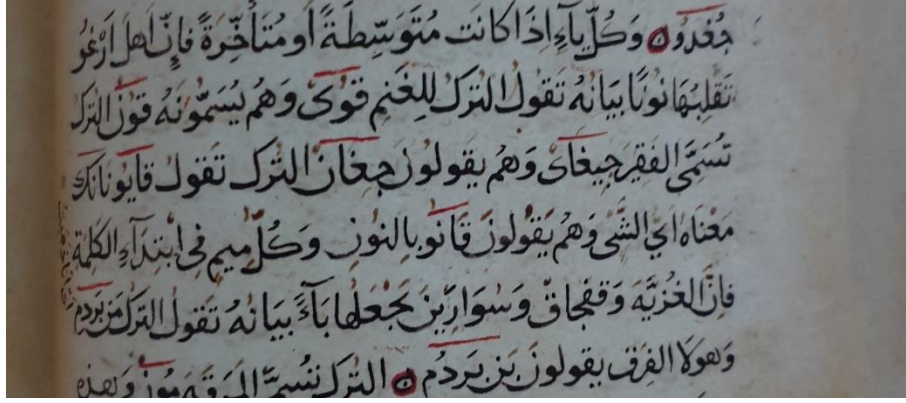 جُغدو ۞ وَكُلّ ياءٍ اِذَا كانت مُتَوَسِّطَةً او مُتَأخِّرَةً فإنّ اهل اَرْغو
تَقلِبُهَا نونًا بيَانُهُ تَقولُ التركُ للغَنمِ قوىْ وَهُم يُسَمّونَهُ قونْ الترك
تُسَمّى الفَقِرَ جيغاىْ وَهُم يقولونَ جغانْ الترك تَقولُ قايو نانك
مَعْنَاه اىّ الشّى وَهُم يَقولونَ قانو بالنونِ وَكُلّ ميمٍ فى ابتِدَآءِ الكلمة
فانّ الغُزيَّةَ وَقفجاقْ وَسُوَارِّينَ يَجْعَلهَا بَآءً بيَانُهُ تَقولُ التركُ مَن بَردم
وَهولاَ الفِرق يقولونَ بَن بَردُم ۞ التركُ تُسمِّى المرقه مونْ وَهذه